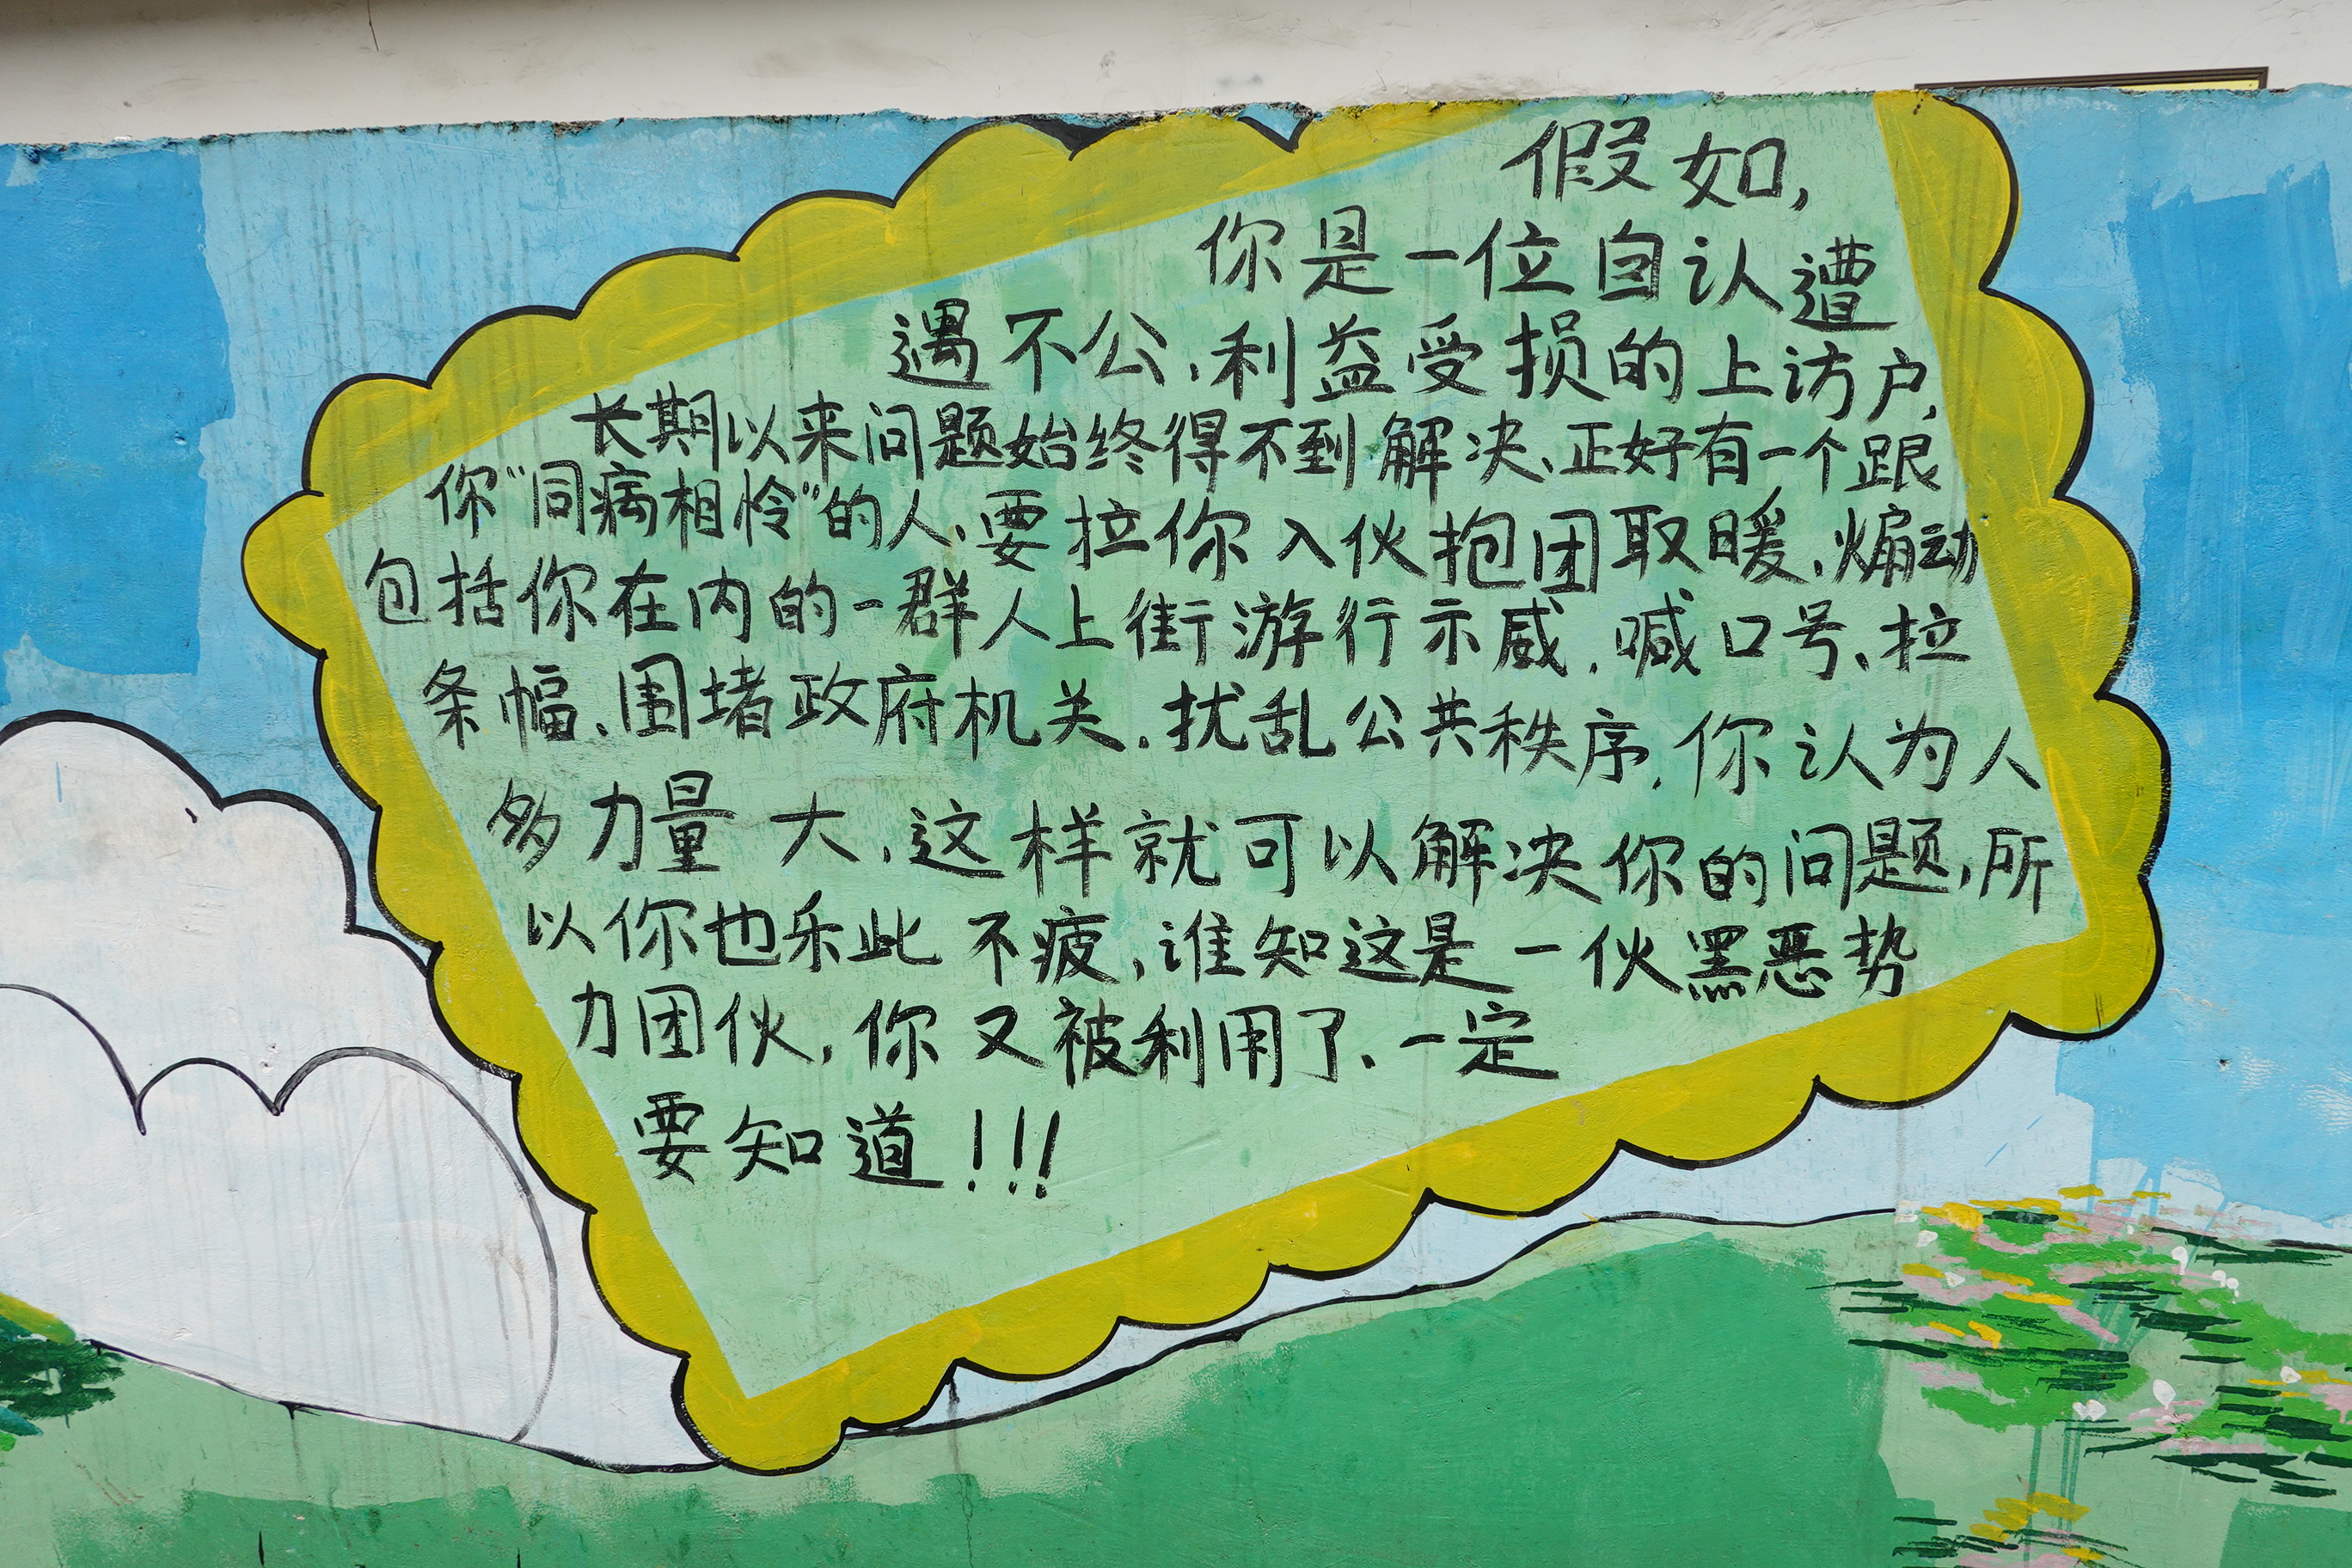 假如,
你是一位自认遭
遇不公,利益受损的上访户,
长期以来问题始终得不到解决、正好有一个跟
你"同病相怜"的人、要拉你入伙抱团取暖,煽动
包括你在内的一群人上街游行示威,喊口号、拉
条幅、围堵政府机关,扰乱公共秩序,你认为人
多力量大,这样就可以解决你的问题,所
以你也乐此不疲,谁知这是一伙黑恶势
力团伙,你又被利用了、一定
要知道!!!